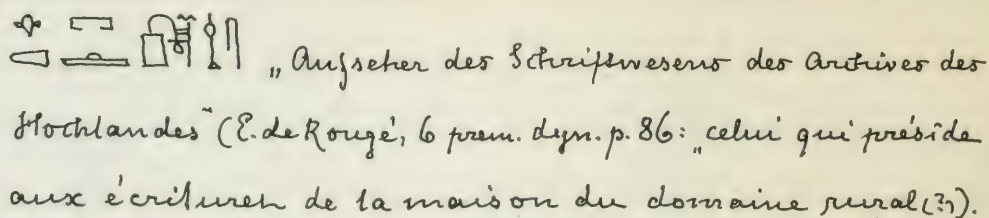 „Aufseher des Schriftwesens des Archives des
Hochlandes“ (E. de Rougé, 6 prem. dyn. p. 86: „celui qui préside
aux écritures de la maison du domaine rural(?)).